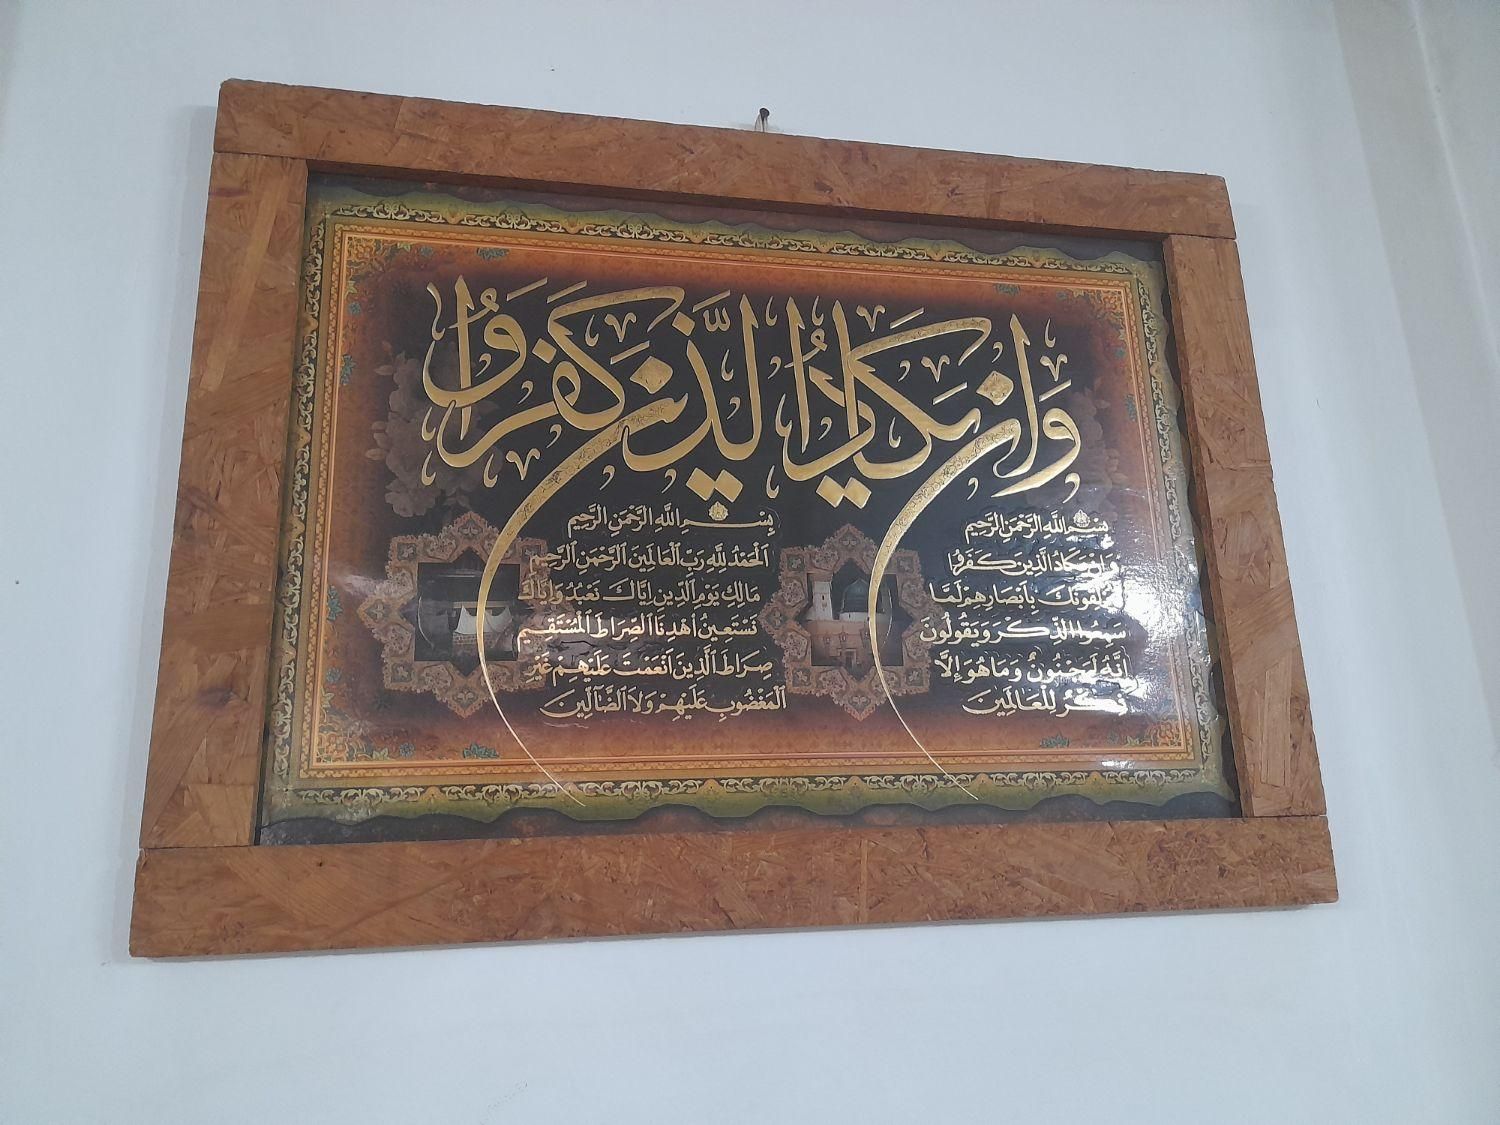 وَاِنْ يَكَادُ الَّذينَ كَفَرُوا
بِسْمِ اللَّهِ الرَّحْمَنِ الرَّحِيمِ
وَاِنْ يَكَادُ الَّذِينَ كَفَرُوا
لَيُزْلِقُونَكَ بِاَبْصَارِهِمْ لَمَّا
سَمِعُوا الذِّكْرَ وَيَقُولُونَ
اِنَّهُ لَمَجْنُونٌ وَمَا هُوَ اِلَّا
ذِكْرٌ لِلْعَالَمِينَ
بِسْمِ اللَّهِ الرَّحْمَنِ الرَّحِيمِ
اَلْحَمْدُ لِلَّهِ رَبِّ الْعَالَمِينَ اَلرَّحْمَنِ الرَّحِيمِ
مَالِكِ يَوْمِ الدِّينِ اِيَّاكَ نَعْبُدُ وَاِيَّاكَ
نَسْتَعِينُ اُهْدِنَا الصِّرَاطَ الْمُسْتَقِيمَ
صِرَاطَ الَّذِينَ اَنْعَمْتَ عَلَيْهِمْ غَيْرِ
الْمَغْضُوبِ عَلَيْهِمْ وَلَا الضَّآلِّينَ